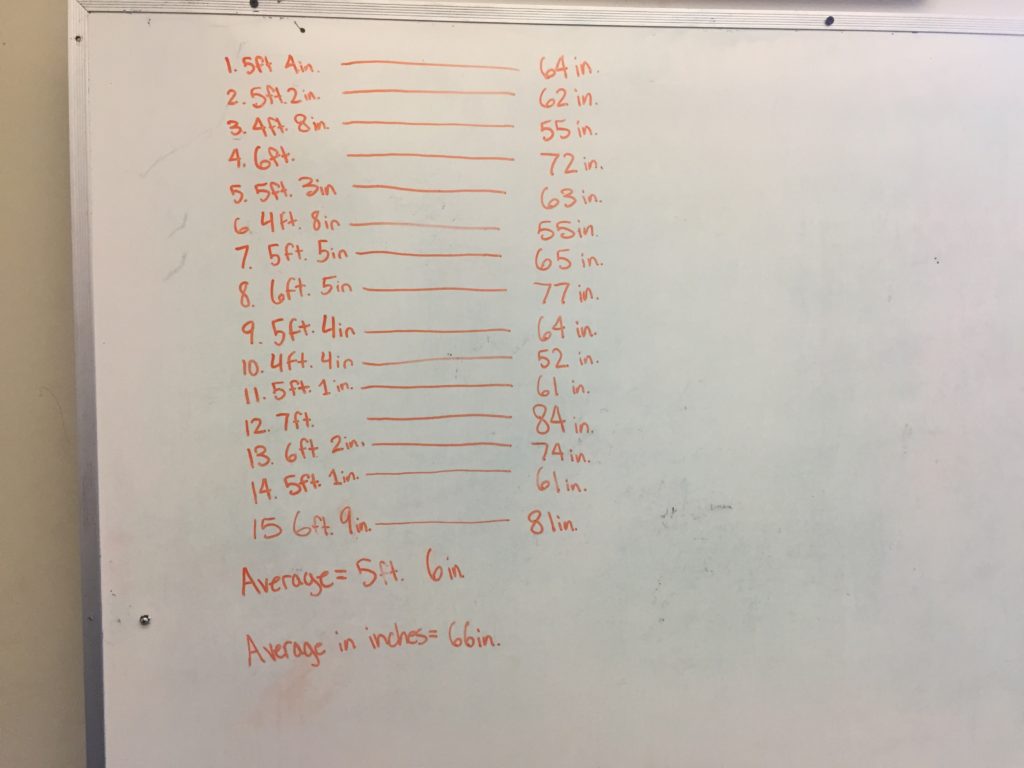 1. 5ft 4in. 64 in.
2. 5ft. 2in. 62 in.
3. 4ft. 8in. 55 in.
4. 6ft. 72 in.
5. 5ft. 3in 63 in.
6. 4ft. 8in 55in.
7. 5ft. 5in 65 in.
8. 6ft. 5in 77 in.
9. 5ft. 4in 64 in.
10. 4ft. 4in 52 in.
11. 5ft. 1in. 61 in.
12. 7ft. 84 in.
13. 6ft 2in. 74 in.
14. 5ft. 1in. 61in.
15 6ft. 9in. 81in.
Average= 5ft. 6in
Average in inches= 66in.